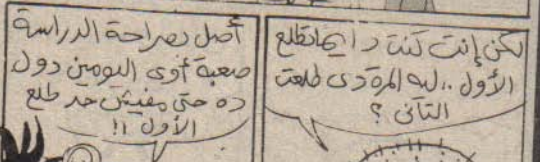 لكن إنت كنت دايمًا تطلع
الأول .. ليه المرة دى طلعت
التانى ؟
أصل بصراحة الدراسة
صعبة أوى اليومين دول
ده حتى مفيش حد طلع
الأول !!